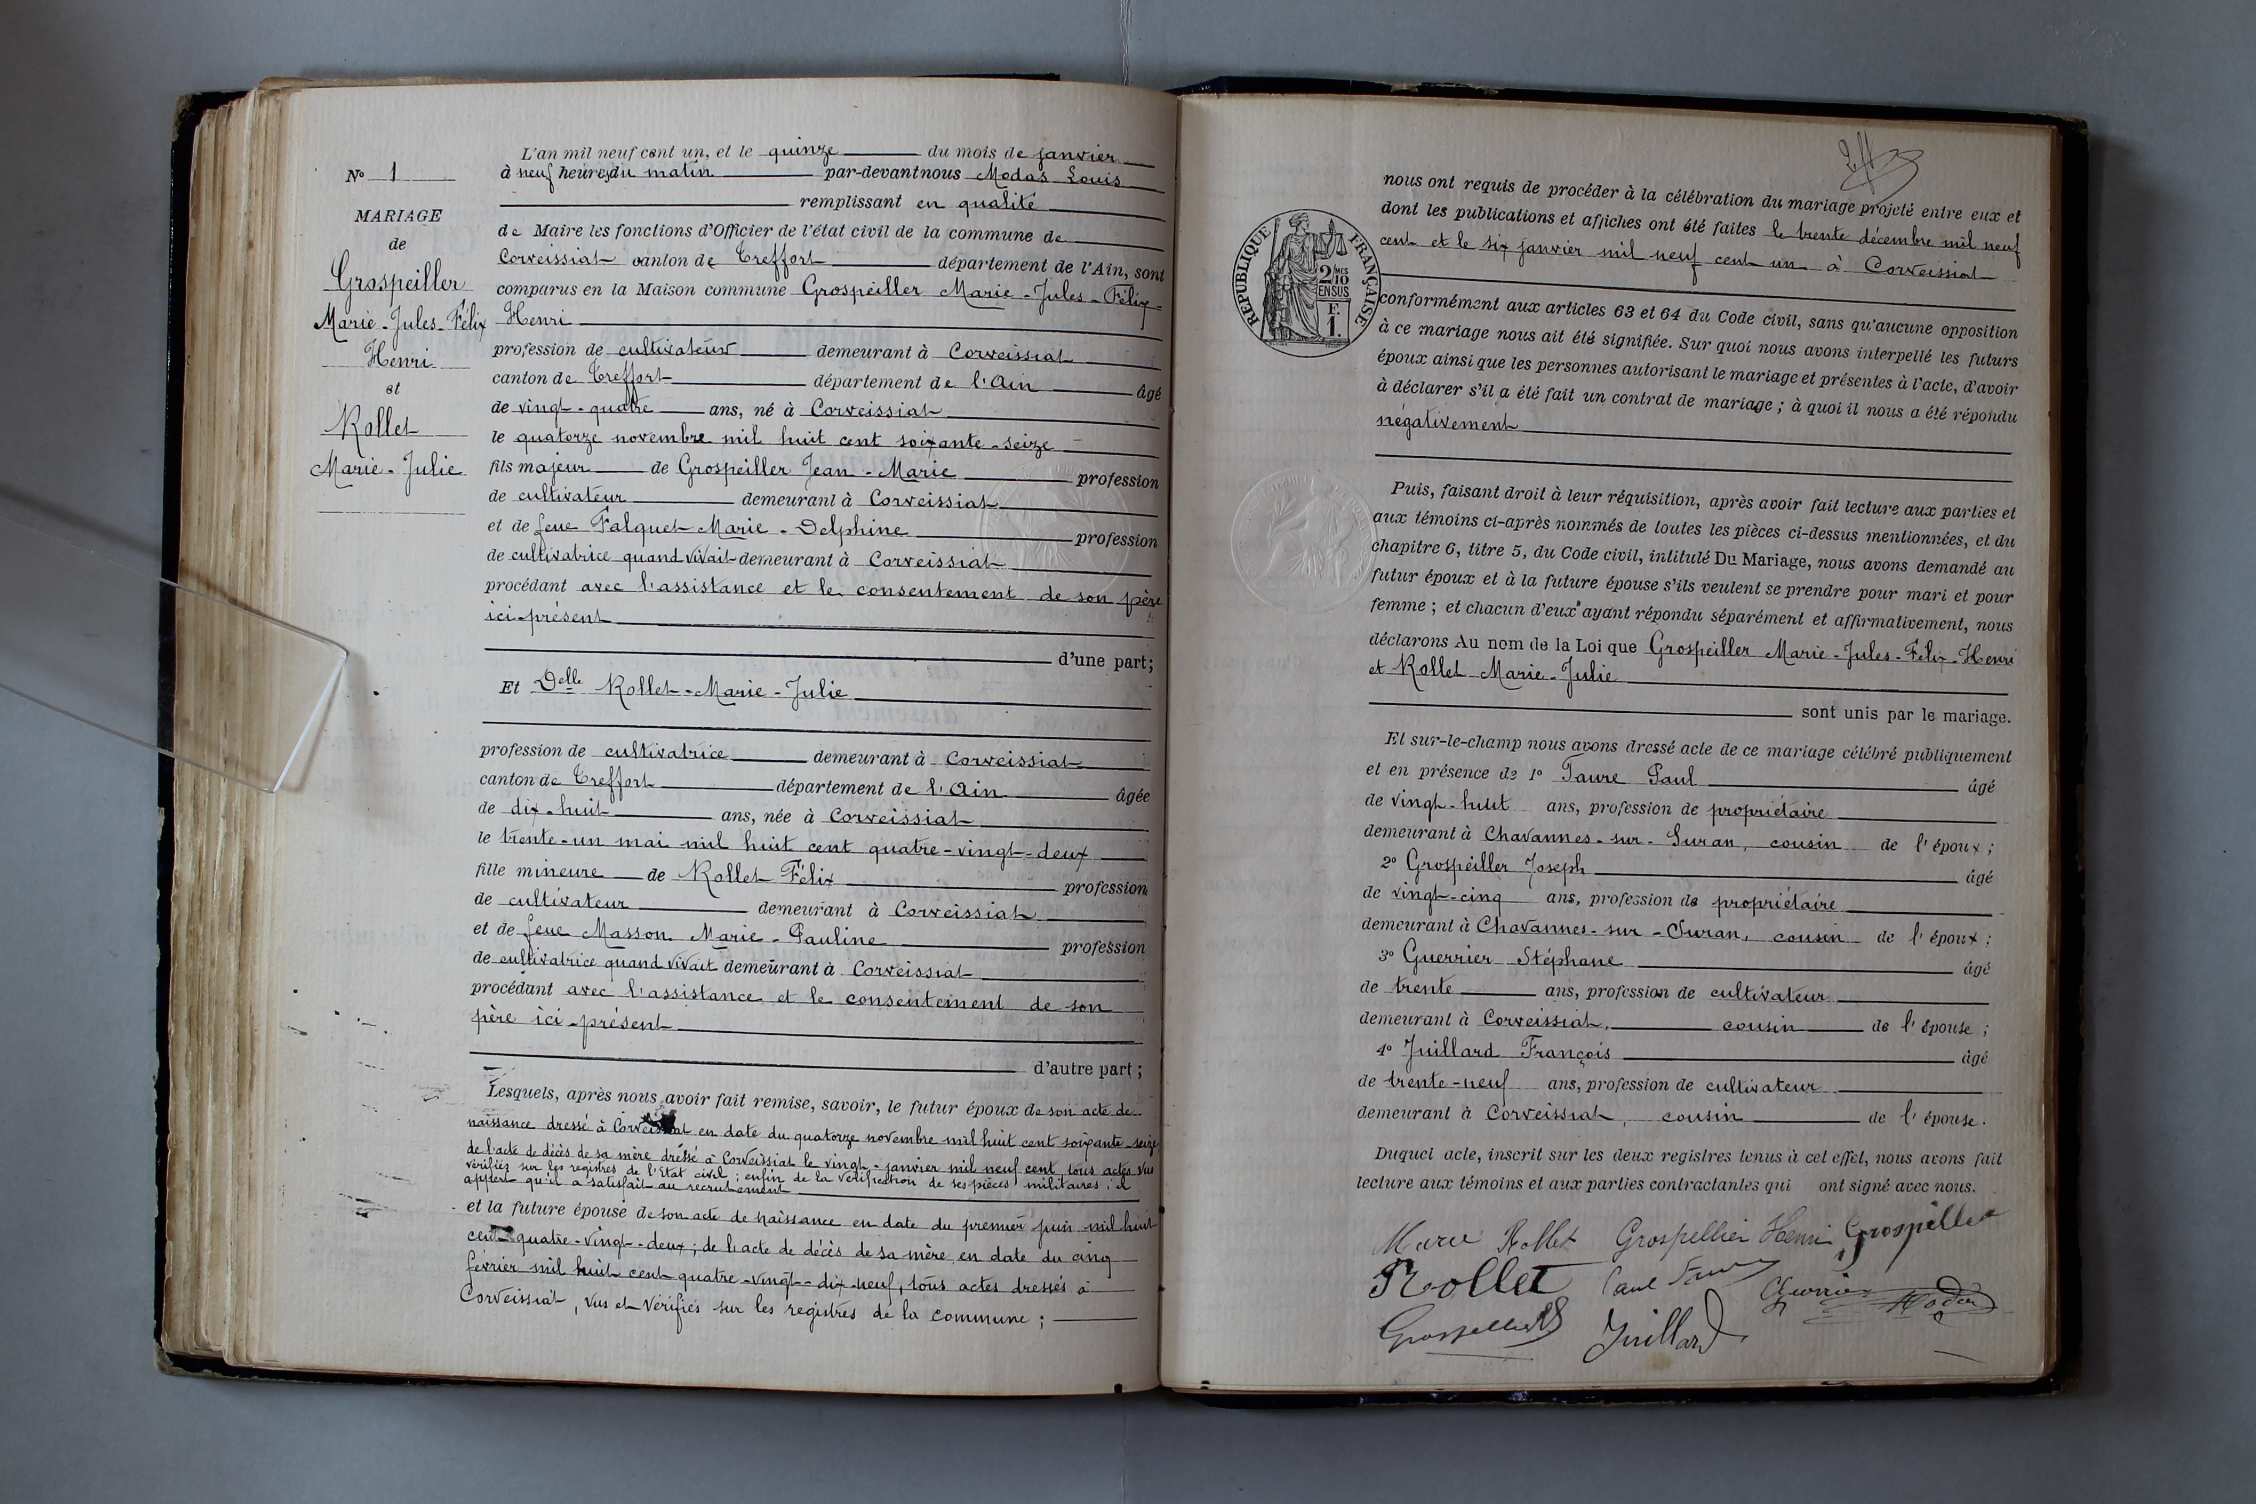 N° 1
MARIAGE
de
Grospeiller
Marie-Jules-Félix
Henri
et
Rollet
Marie-Julie
L'an mil neuf cent un, et le quinze du mois de janvier
à neuf heures du matin par-devant nous Modas Louis
remplissant en qualité
de Maire les fonctions d'Officier de l'état civil de la commune de
Corveissiat canton de Treffort département de l'Ain, sont
comparus en la Maison commune Grospeiller Marie-Jules-Félix-
Henri
profession de cultivateur demeurant à Corveissiat
canton de Treffort département de l'Ain âgé
de vingt-quatre ans, né à Corveissiat
le quatorze novembre mil huit cent soixante-seize
fils majeur de Grospeiller Jean-Marie profession
de cultivateur demeurant à Corveissiat
et de feue Falquet Marie-Delphine profession
de cultivatrice quand vivait demeurant à Corveissiat
procédant avec l'assistance et le consentement de son père
ici-présent
d'une part;
Et Delle Rollet-Marie-Julie
profession de cultivatrice demeurant à Corveissiat
canton de Treffort département de l'Ain âgée
de dix-huit ans, née à Corveissiat
le trente-un mai mil huit cent quatre-vingt-deux
fille mineure de Rollet Félix profession
de cultivateur demeurant à Corveissiat
et de feue Masson Marie-Pauline profession
de cultivatrice quand vivait demeurant à Corveissiat
procédant avec l'assistance et le consentement de son
père ici-présent
d'autre part;
Lesquels, après nous avoir fait remise, savoir, le futur époux de son acte de
naissance dressé à Corveissiat en date du quatorze novembre mil huit cent soixante-seize
de l'acte de décès de sa mère dressé à Corveissiat le vingt-janvier mil neuf cent, tous actes vus
vérifiés sur les registres de l'Etat civil; enfin de la vérification de ses pièces militaires; il
appert qu'il a satisfait au recrutement
et la future épouse de son acte de naissance en date du premier juin mil huit
cent quatre-vingt-deux; de l'acte de décès de sa mère en date du cinq
février mil huit cent quatre-vingt-dix-neuf, tous actes dressés à
Corveissiat, vus et vérifiés sur les registres de la commune;
RÉPUBLIQUE FRANÇAISE
2/10 MES
EN SUS
F.
1.
nous ont requis de procéder à la célébration du mariage projeté entre eux et
dont les publications et affiches ont été faites le trente décembre mil neuf
cent et le six janvier mil neuf cent un à Corveissiat
conformément aux articles 63 et 64 du Code civil, sans qu'aucune opposition
à ce mariage nous ait été signifiée. Sur quoi nous avons interpellé les futurs
époux ainsi que les personnes autorisant le mariage et présentes à l'acte, d'avoir
à déclarer s'il a été fait un contrat de mariage; à quoi il nous a été répondu
négativement
Puis, faisant droit à leur réquisition, après avoir fait lecture aux parties et
aux témoins ci-après nommés de toutes les pièces ci-dessus mentionnées, et du
chapitre 6, titre 5, du Code civil, intitulé Du Mariage, nous avons demandé au
futur époux et à la future épouse s'ils veulent se prendre pour mari et pour
femme; et chacun d'eux ayant répondu séparément et affirmativement, nous
déclarons Au nom de la Loi que Grospeiller Marie-Jules-Félix-Henri
et Rollet Marie-Julie
sont unis par le mariage.
Et sur-le-champ nous avons dressé acte de ce mariage célébré publiquement
et en présence de 1° Faure Paul âgé
de vingt-huit ans, profession de propriétaire
demeurant à Chavannes-sur-Suran, cousin de l'époux;
2° Grospeiller Joseph âgé
de vingt-cinq ans, profession de propriétaire
demeurant à Chavannes-sur-Suran, cousin de l'époux;
3° Guerrier Stéphane âgé
de trente ans, profession de cultivateur
demeurant à Corveissiat, cousin de l'épouse;
4° Juillard François âgé
de trente-neuf ans, profession de cultivateur
demeurant à Corveissiat, cousin de l'épouse.
Duquel acte, inscrit sur les deux registres tenus à cet effet, nous avons fait
lecture aux témoins et aux parties contractantes qui ont signé avec nous.
Marie Rollet Grospellier Henri Grospeller
Rollet Paul Faure Guerrier Modas
Grospellier Juillard